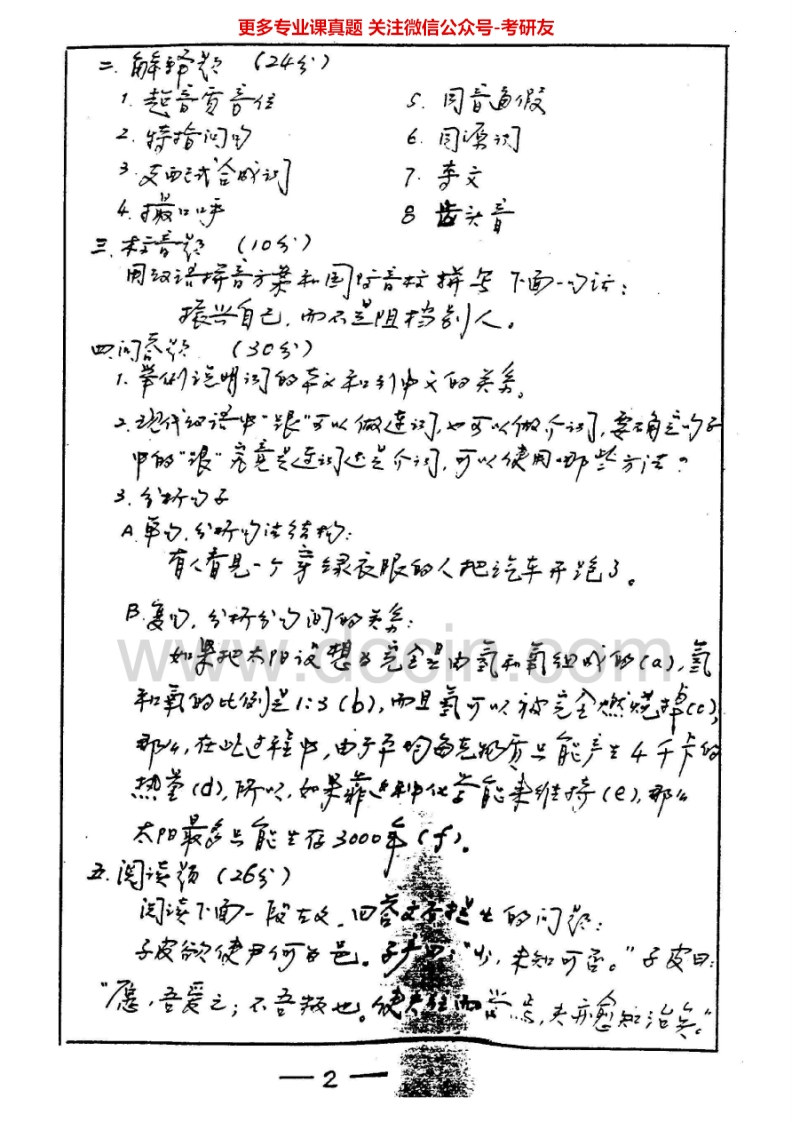 更多专业课真题 关注微信公众号-考研友
二. 解释题 (24分)
1. 超音质音位
5. 同音通假
2. 特指问句
6. 同源词
3. 支配式合成词
7. 李文
4. 撮口呼
8 齿头音
三. 标音题 (10分)
用汉语拼音方案和国际音标拼写下面一句话:
振兴自己,而不是阻挡别人。
四.问答题 (30分)
1. 举例说明词的本义和引申义的关系。
2. 现代汉语中"跟"可以做连词,也可以做介词,要确定句子
中的"跟"究竟是连词还是介词,可以使用哪些方法?
3. 分析句子
A.单句,分析句法结构:
有人看见一个穿绿衣服的人把汽车开跑了。
B.复句,分析分句间的关系:
如果把太阳设想为完全是由氢和氧组成的(a),氢
和氧的比例是1:3(b),而且氢可以被完全燃烧掉(c),
那么,在此过程中,由于平均每克物质只能产生4千卡的
热量(d),所以,如果靠这种化学能来维持(e),那么
太阳最多只能生存3000年(f)。
五.阅读题 (26分)
阅读下面一段古文,回答文后提出的问题:
子皮欲使尹何为邑。子产曰:"少,未知可否。"子皮曰:
"愿,吾爱之;不吾叛也。使夫往而学焉,夫亦愈知治矣。"
— 2 —
www.docin.com